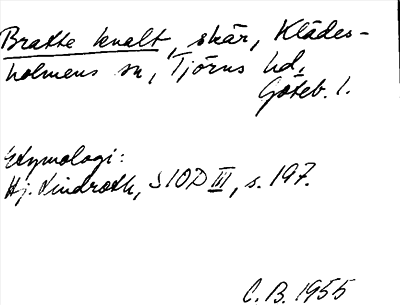 Bratte knalt, skär, Klädes-
holmens sn, Tjörns hd,
Göteb. l.
Etymologi:
Hj. Lindroth, SIOD III, s. 197.
C. B. 1955